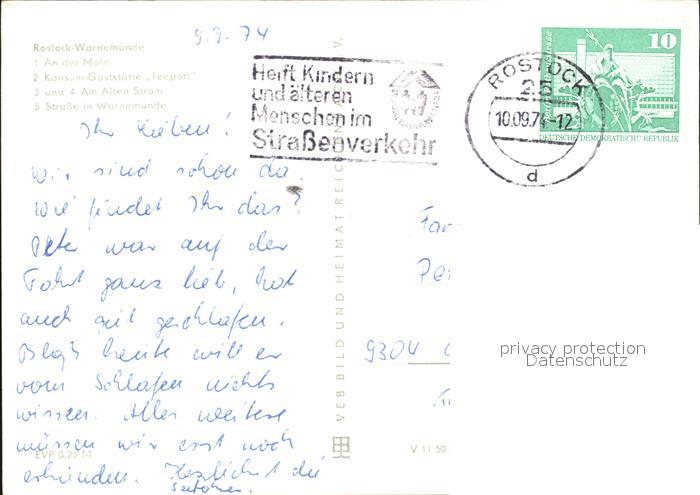 9.9.74
Rostock-Warnemünde
1 An der Mole
2 Konsum-Gaststätte „Teepott"
3 und 4 Am Alten Strom
5 Straße in Warnemünde
Helft Kindern
und älteren
Menschen im
Straßenverkehr
ROSTOCK
25
10.09.74-12
d
10
DEUTSCHE DEMOKRATISCHE REPUBLIK
Ihr Lieben!
Wir sind schon da.
Wie findet Ihr das?
Peter war auf der
Fahrt ganz lieb, hat
auch gut geschlafen.
Bloß heute will er
vom Schlafen nichts
wissen. Alles weitere
müssen wir erst noch
erkunden. Herzlichst die
Fam
Pe
9304
VEB BILD UND HEIMAT REIC
V.
EVP 0,25 M
V 11 50
privacy protection
Datenschutz